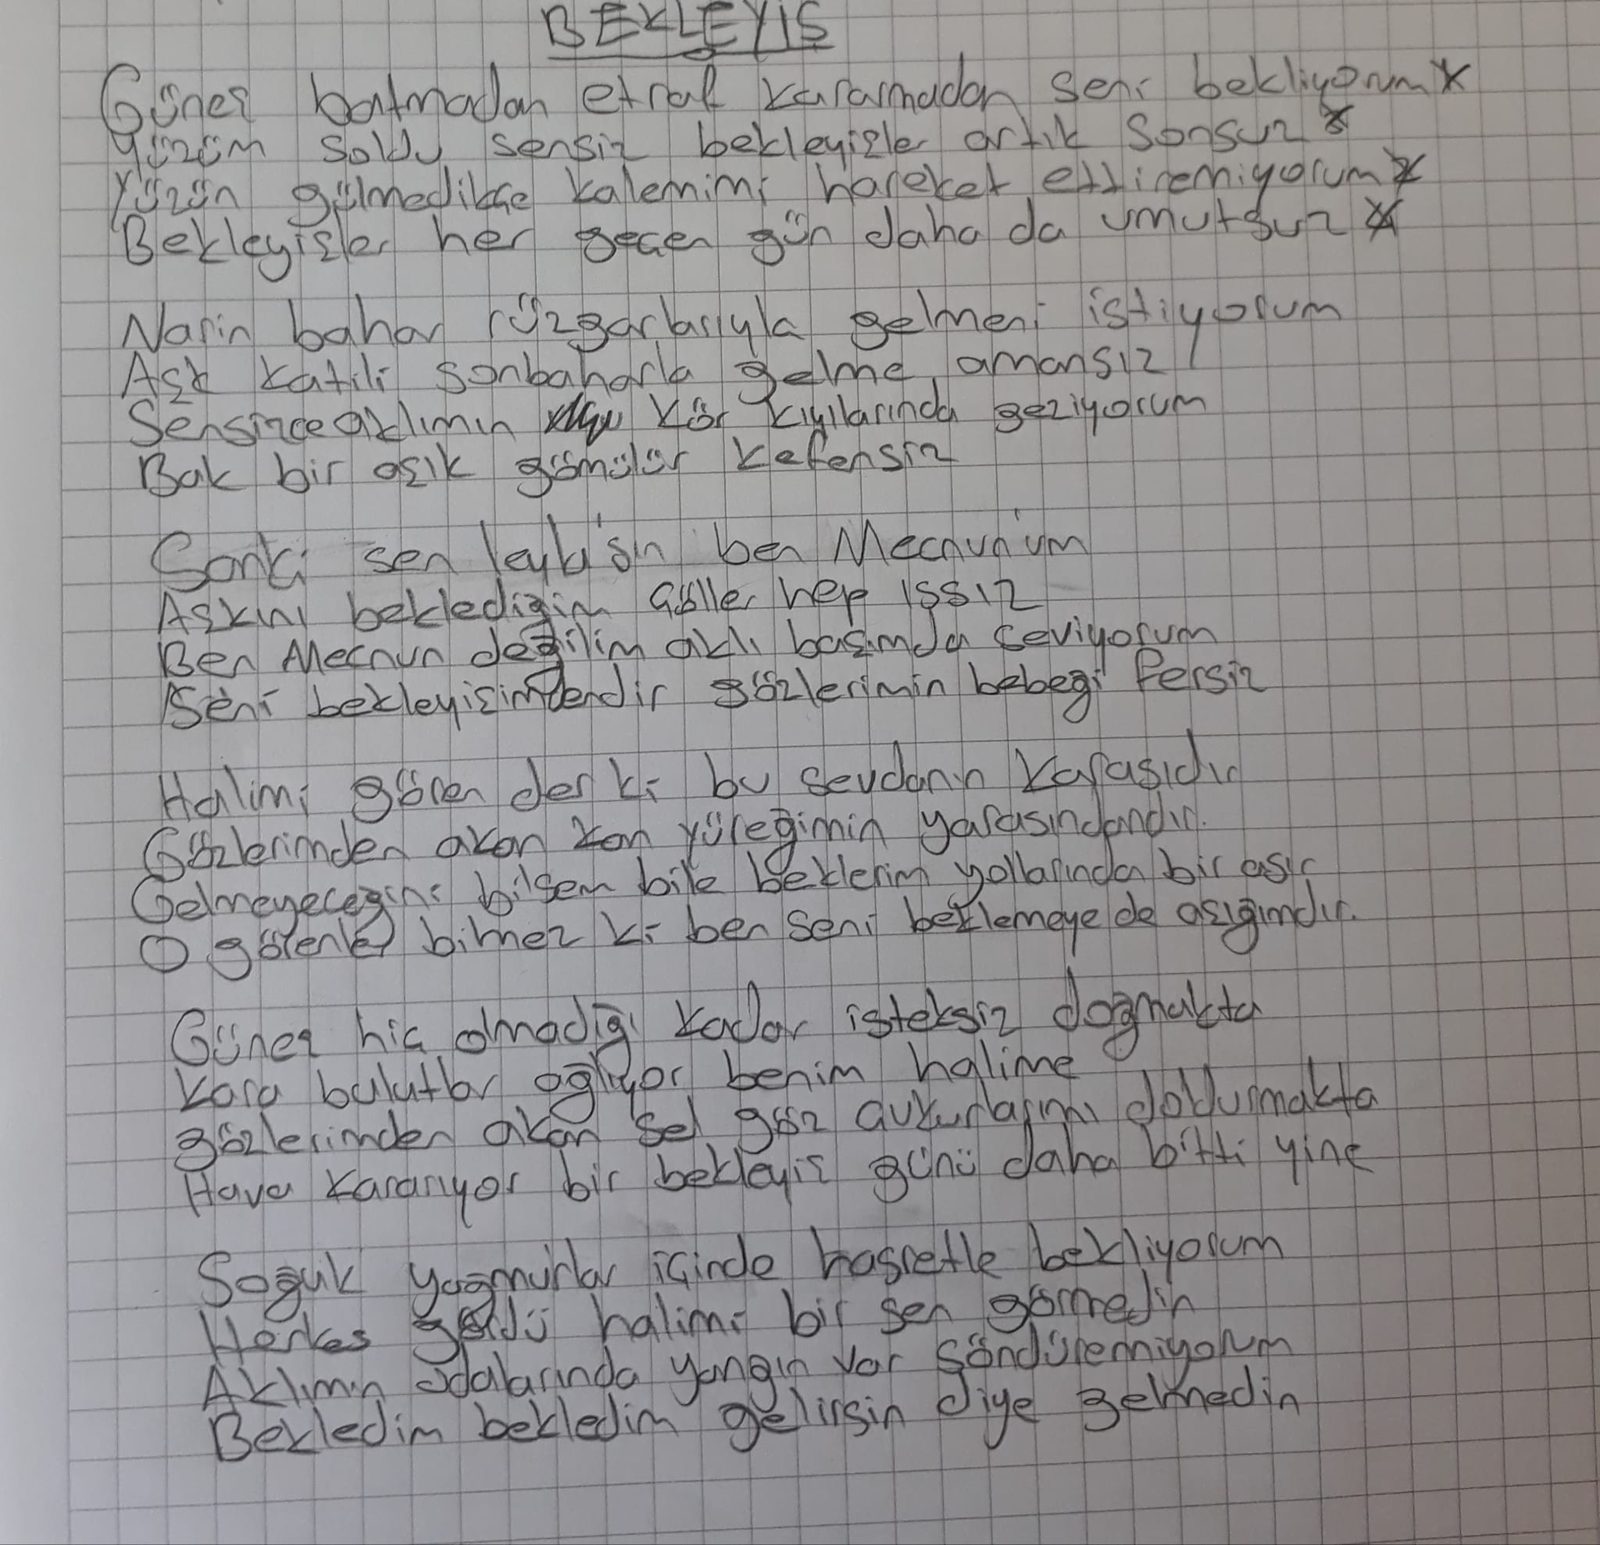 BEKLEYİŞ
Güneş batmadan etraf kararmadan seni bekliyorum
Yüzüm soldu sensiz bekleyişler artık sonsuz
Yüzün gülmedikçe kalemimi hareket ettiremiyorum
Bekleyişler her geçen gün daha da umutsuz
Narin bahar rüzgarlarıyla gelmeni istiyorum
Aşk katili sonbaharla gelme, amansız
Sensizce aklımın kör kıyılarında geziyorum
Bak bir aşık gömülür kefensiz
Sanki sen leyla'sın ben Mecnun'um
Aşkını beklediğim göller hep ıssız
Ben Mecnun değilim aklı başımda seviyorum
Seni bekleyişimdendir gözlerimin bebeği fersiz
Halimi gören der ki bu sevdanın karasıdır
Gözlerimden akan kan yüreğimin yarasındandır.
Gelmeyeceğini bilsem bile beklerim yollarında bir asır
O görenler bilmez ki ben seni beklemeye de aşığımdır.
Güneş hiç olmadığı kadar isteksiz doğmakta
Kara bulutlar ağlıyor benim halime
gözlerimden akan sel göz çukurlarımı doldurmakta
Hava kararıyor bir bekleyiş günü daha bitti yine
Soğuk yağmurlar içinde hasretle bekliyorum
Herkes gördü halimi bir sen görmedin
Aklımın odalarında yangın var söndüremiyorum
Bekledim bekledim gelirsin diye gelmedin